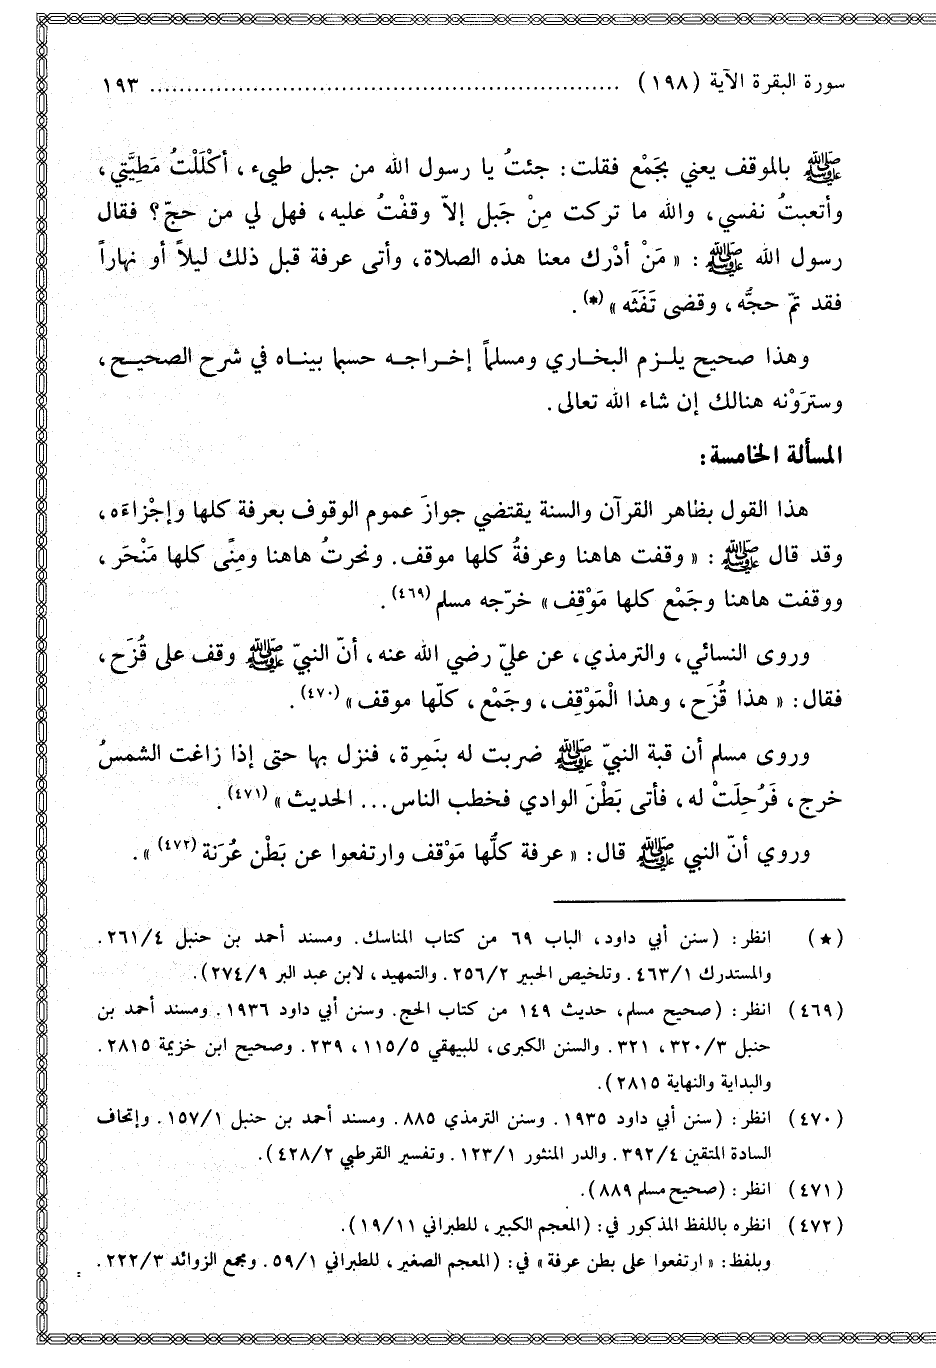 سورة البقرة الآية (١٩٨) ............................................................ ١٩٣
ﷺ بالموقف يعني بجَمْع فقلت: جئتُ يا رسول الله من جبل طيء، أكْلَلْتُ مَطِيَّتِي،
وأتعبتُ نفسي، والله ما تركت مِنْ جَبل إلاّ وقفْتُ عليه، فهل لي من حجّ؟ فقال
رسول الله ﷺ: « مَنْ أدْرك معنا هذه الصلاة، وأتى عرفة قبل ذلك ليلاً أو نهاراً
فقد تمّ حجُّه، وقضى تَفَثَه »(*).
وهذا صحيح يلـزم البخـاري ومسلمـاً إخـراجـه حسبما بينـاه في شرح الصحيـح،
وسترَوْنه هنالك إن شاء الله تعالى.
المسألة الخامسة:
هذا القول بظاهر القرآن والسنة يقتضي جوازَ عموم الوقوف بعرفة كلها وإجْزاءَه،
وقد قال ﷺ: « وقفت هاهنا وعرفةُ كلها موقف. ونحرتُ هاهنا ومِنًى كلها مَنْحَر،
ووقفت هاهنا وجَمْع كلها مَوْقِف » خرّجه مسلم(٤٦٩).
وروى النسائي، والترمذي، عن عليّ رضي الله عنه، أنّ النبيّ ﷺ وقف على قُزَح،
فقال: « هذا قُزَح، وهذا الْمَوْقِف، وجَمْع، كلّها موقف »(٤٧٠).
وروى مسلم أن قبة النبيّ ﷺ ضربت له بنَمِرة، فنزل بها حتى إذا زاغت الشمسُ
خرج، فَرُحِلَتْ له، فأتى بَطْنَ الوادي فخطب الناس... الحديث »(٤٧١).
وروي أنّ النبي ﷺ قال: « عرفة كلُّها مَوْقف وارتفعوا عن بَطْن عُرَنة(٤٧٢) ».
(★) انظر: (سنن أبي داود، الباب ٦٩ من كتاب المناسك. ومسند أحمد بن حنبل ٢٦١/٤.
والمستدرك ٤٦٣/١. وتلخيص الحبير ٢٥٦/٢. والتمهيد، لابن عبد البر ٢٧٤/٩).
(٤٦٩) انظر: (صحيح مسلم، حديث ١٤٩ من كتاب الحج. وسنن أبي داود ١٩٣٦. ومسند أحمد بن
حنبل ٣٢٠/٣، ٣٢١. والسنن الكبرى، للبيهقي ١١٥/٥، ٢٣٩. وصحيح ابن خزيمة ٢٨١٥.
والبداية والنهاية ٢٨١٥).
(٤٧٠) انظر: (سنن أبي داود ١٩٣٥. وسنن الترمذي ٨٨٥. ومسند أحمد بن حنبل ١٥٧/١. وإتحاف
السادة المتقين ٣٩٢/٤. والدر المنثور ١٢٣/١. وتفسير القرطبي ٤٢٨/٢).
(٤٧١) انظر: (صحيح مسلم ٨٨٩).
(٤٧٢) انظره باللفظ المذكور في: (المعجم الكبير، للطبراني ١٩/١١).
وبلفظ: « ارتفعوا على بطن عرفة » في: (المعجم الصغير، للطبراني ٥٩/١. ومجمع الزوائد ٢٢٢/٣.